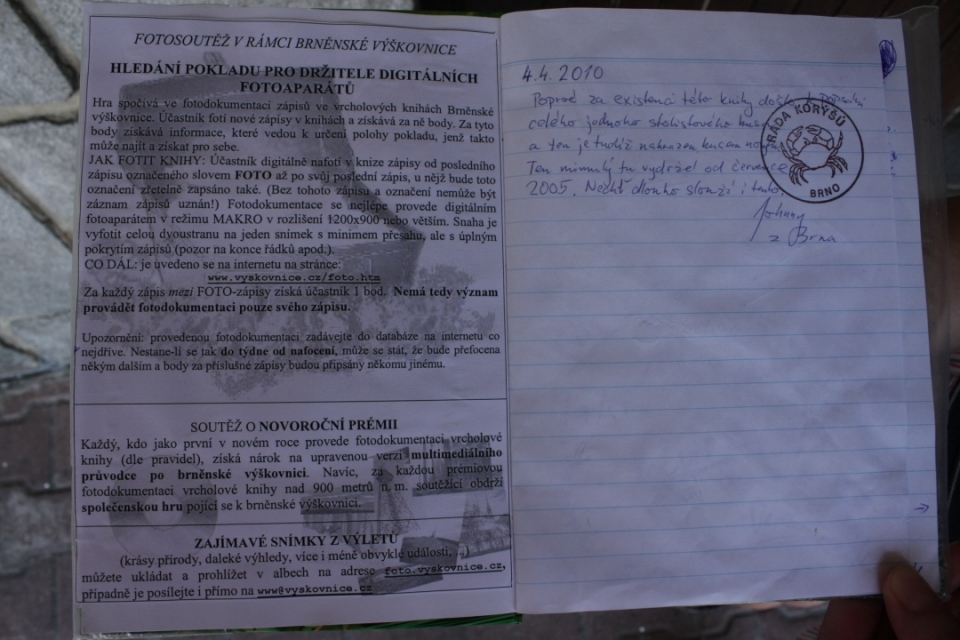 FOTOSOUTĚŽ V RÁMCI BRNĚNSKÉ VÝŠKOVNICE
HLEDÁNÍ POKLADU PRO DRŽITELE DIGITÁLNÍCH
FOTOAPARÁTŮ
Hra spočívá ve fotodokumentaci zápisů ve vrcholových knihách Brněnské
výškovnice. Účastník fotí nové zápisy v knihách a získává za ně body. Za tyto
body získává informace, které vedou k určení polohy pokladu, jenž takto
může najít a získat pro sebe.
JAK FOTIT KNIHY: Účastník digitálně nafotí v knize zápisy od posledního
zápisu označeného slovem FOTO až po svůj poslední zápis, u nějž bude toto
označení zřetelně zapsáno také. (Bez tohoto zápisu a označení nemůže být
záznam zápisů uznán!) Fotodokumentace se nejlépe provede digitálním
fotoaparátem v režimu MAKRO v rozlišení 1200x900 nebo větším. Snaha je
vyfotit celou dvoustranu na jeden snímek s minimem přesahu, ale s úplným
pokrytím zápisů (pozor na konce řádků apod.).
CO DÁL: je uvedeno se na internetu na stránce:
www.vyskovnice.cz/foto.htm
Za každý zápis mezi FOTO-zápisy získá účastník 1 bod. Nemá tedy význam
provádět fotodokumentaci pouze svého zápisu.
Upozornění: provedenou fotodokumentaci zadávejte do databáze na internetu co
nejdříve. Nestane-li se tak do týdne od nafocení, může se stát, že bude přefocena
někým dalším a body za příslušné zápisy budou připsány někomu jinému.
SOUTĚŽ O NOVOROČNÍ PRÉMII
Každý, kdo jako první v novém roce provede fotodokumentaci vrcholové
knihy (dle pravidel), získá nárok na upravenou verzi multimediálního
průvodce po brněnské výškovnici. Navíc, za každou prémiovou
fotodokumentaci vrcholové knihy nad 900 metrů n. m. soutěžící obdrží
společenskou hru pojící se k brněnské výškovnici.
ZAJÍMAVÉ SNÍMKY Z VÝLETŮ
(krásy přírody, daleké výhledy, více i méně obvyklé události, ...)
můžete ukládat a prohlížet v albech na adrese foto.vyskovnice.cz,
případně je posílejte i přímo na www@vyskovnice.cz
4.4.2010
Poprvé za existenci této knihy došlo k popsání
celého jednoho stolistového
a ten je tudíž nahrazen kusem
Ten minulý tu vydržel od července
2005. Nechť dlouho slouží i tento.
Johnny
z Brna
RÁDA KORÝŠŮ
BRNO